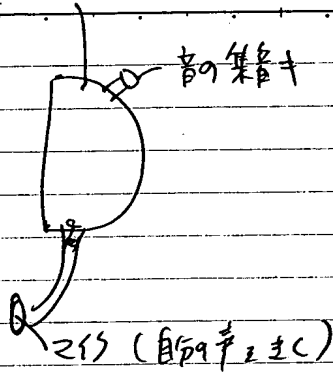 音の集音キ
マイク (自分の声をきく)